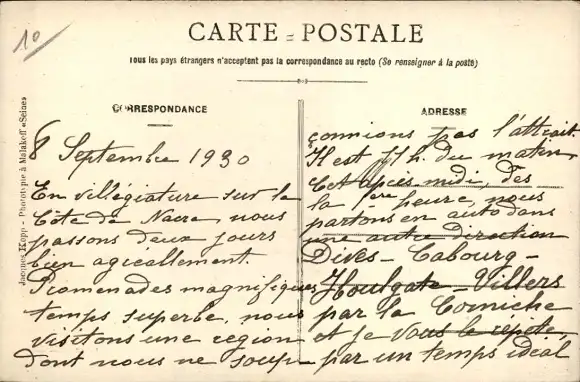 10
CARTE = POSTALE
Tous les pays étrangers n'acceptent pas la correspondance au recto (Se renseigner à la poste)
CORRESPONDANCE
8 Septembre 1930
En villégiature sur la
Côte de Nacre, nous
passons deux jours
bien agréablement.
Promenades magnifiques
temps superbe, nous
visitons une région
dont nous ne soup-
ADRESSE
çonnions pas l'attrait.
Il est 11 h. du matin.
Cet après midi, dès
la 1ère heure, nous
partons en auto dans
une autre direction
Dives - Cabourg -
Houlgate - Villers
par la Corniche
et je vous le répète
par un temps idéal
Jacques Kopp - Phototypie à Malakoff (Seine)